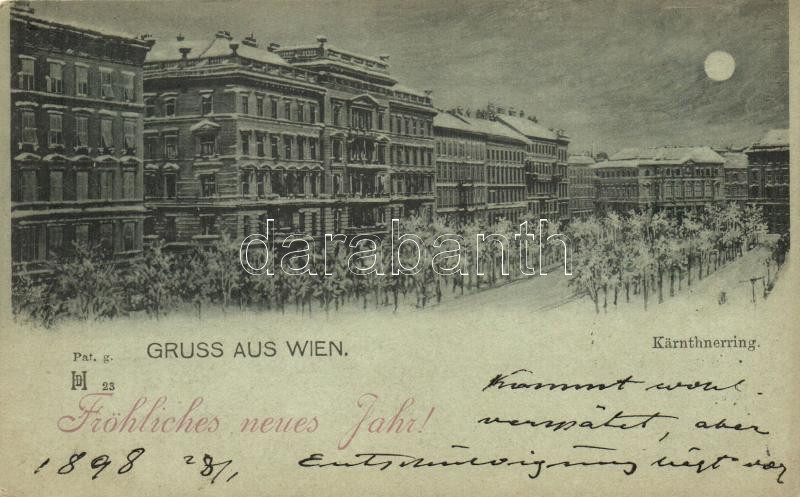 darabanth
GRUSS AUS WIEN.
Kärnthnerring.
Pat. g.
23
Fröhliches neues Jahr!
Kommt wohl
verspätet, aber
1898 28/1 Entschuldigung liegt vor